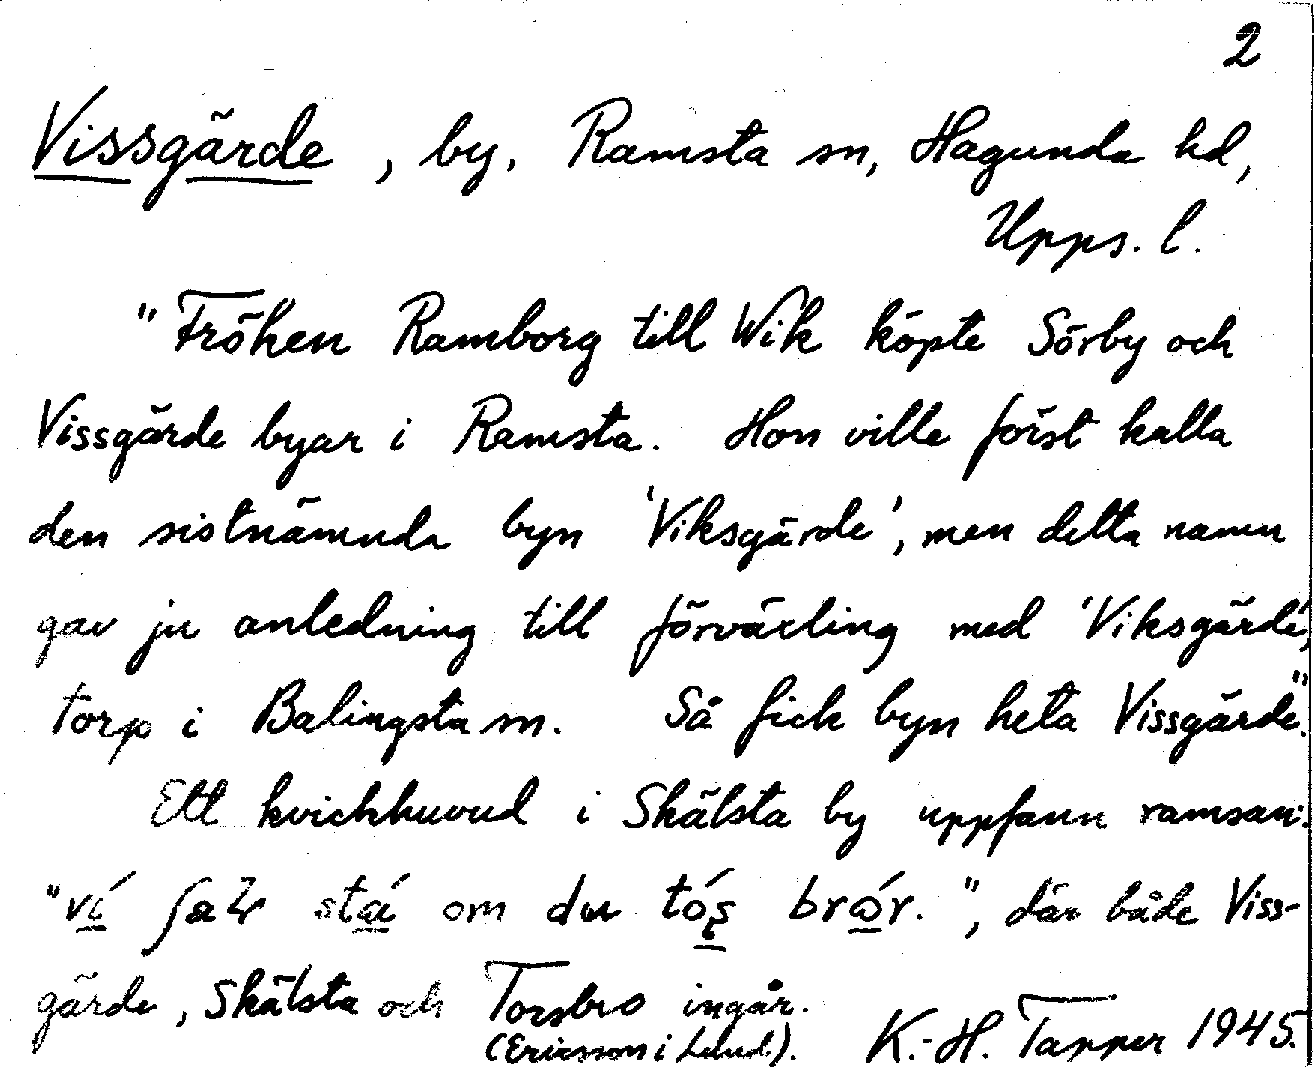 2
Vissgärde, by, Ramsta sn, Hagunda hd,
Upps. l.
"Fröken Ramborg till Wik köpte Sörby och
Vissgärde byar i Ramsta. Hon ville först kalla
den sistnämnda byn 'Viksgärde', men detta namn
gav ju anledning till förväxling med 'Viksgärde',
torp i Balingsta sn. Så fick byn heta Vissgärde."
Ett kvickhuvud i Skälsta by uppfann ramsan:
"ví stá om du brór.", där både Viss-
gärde, Skälsta och Torsbro ingår.
(Ericsson i Lund). K.-H. Tapper 1945.